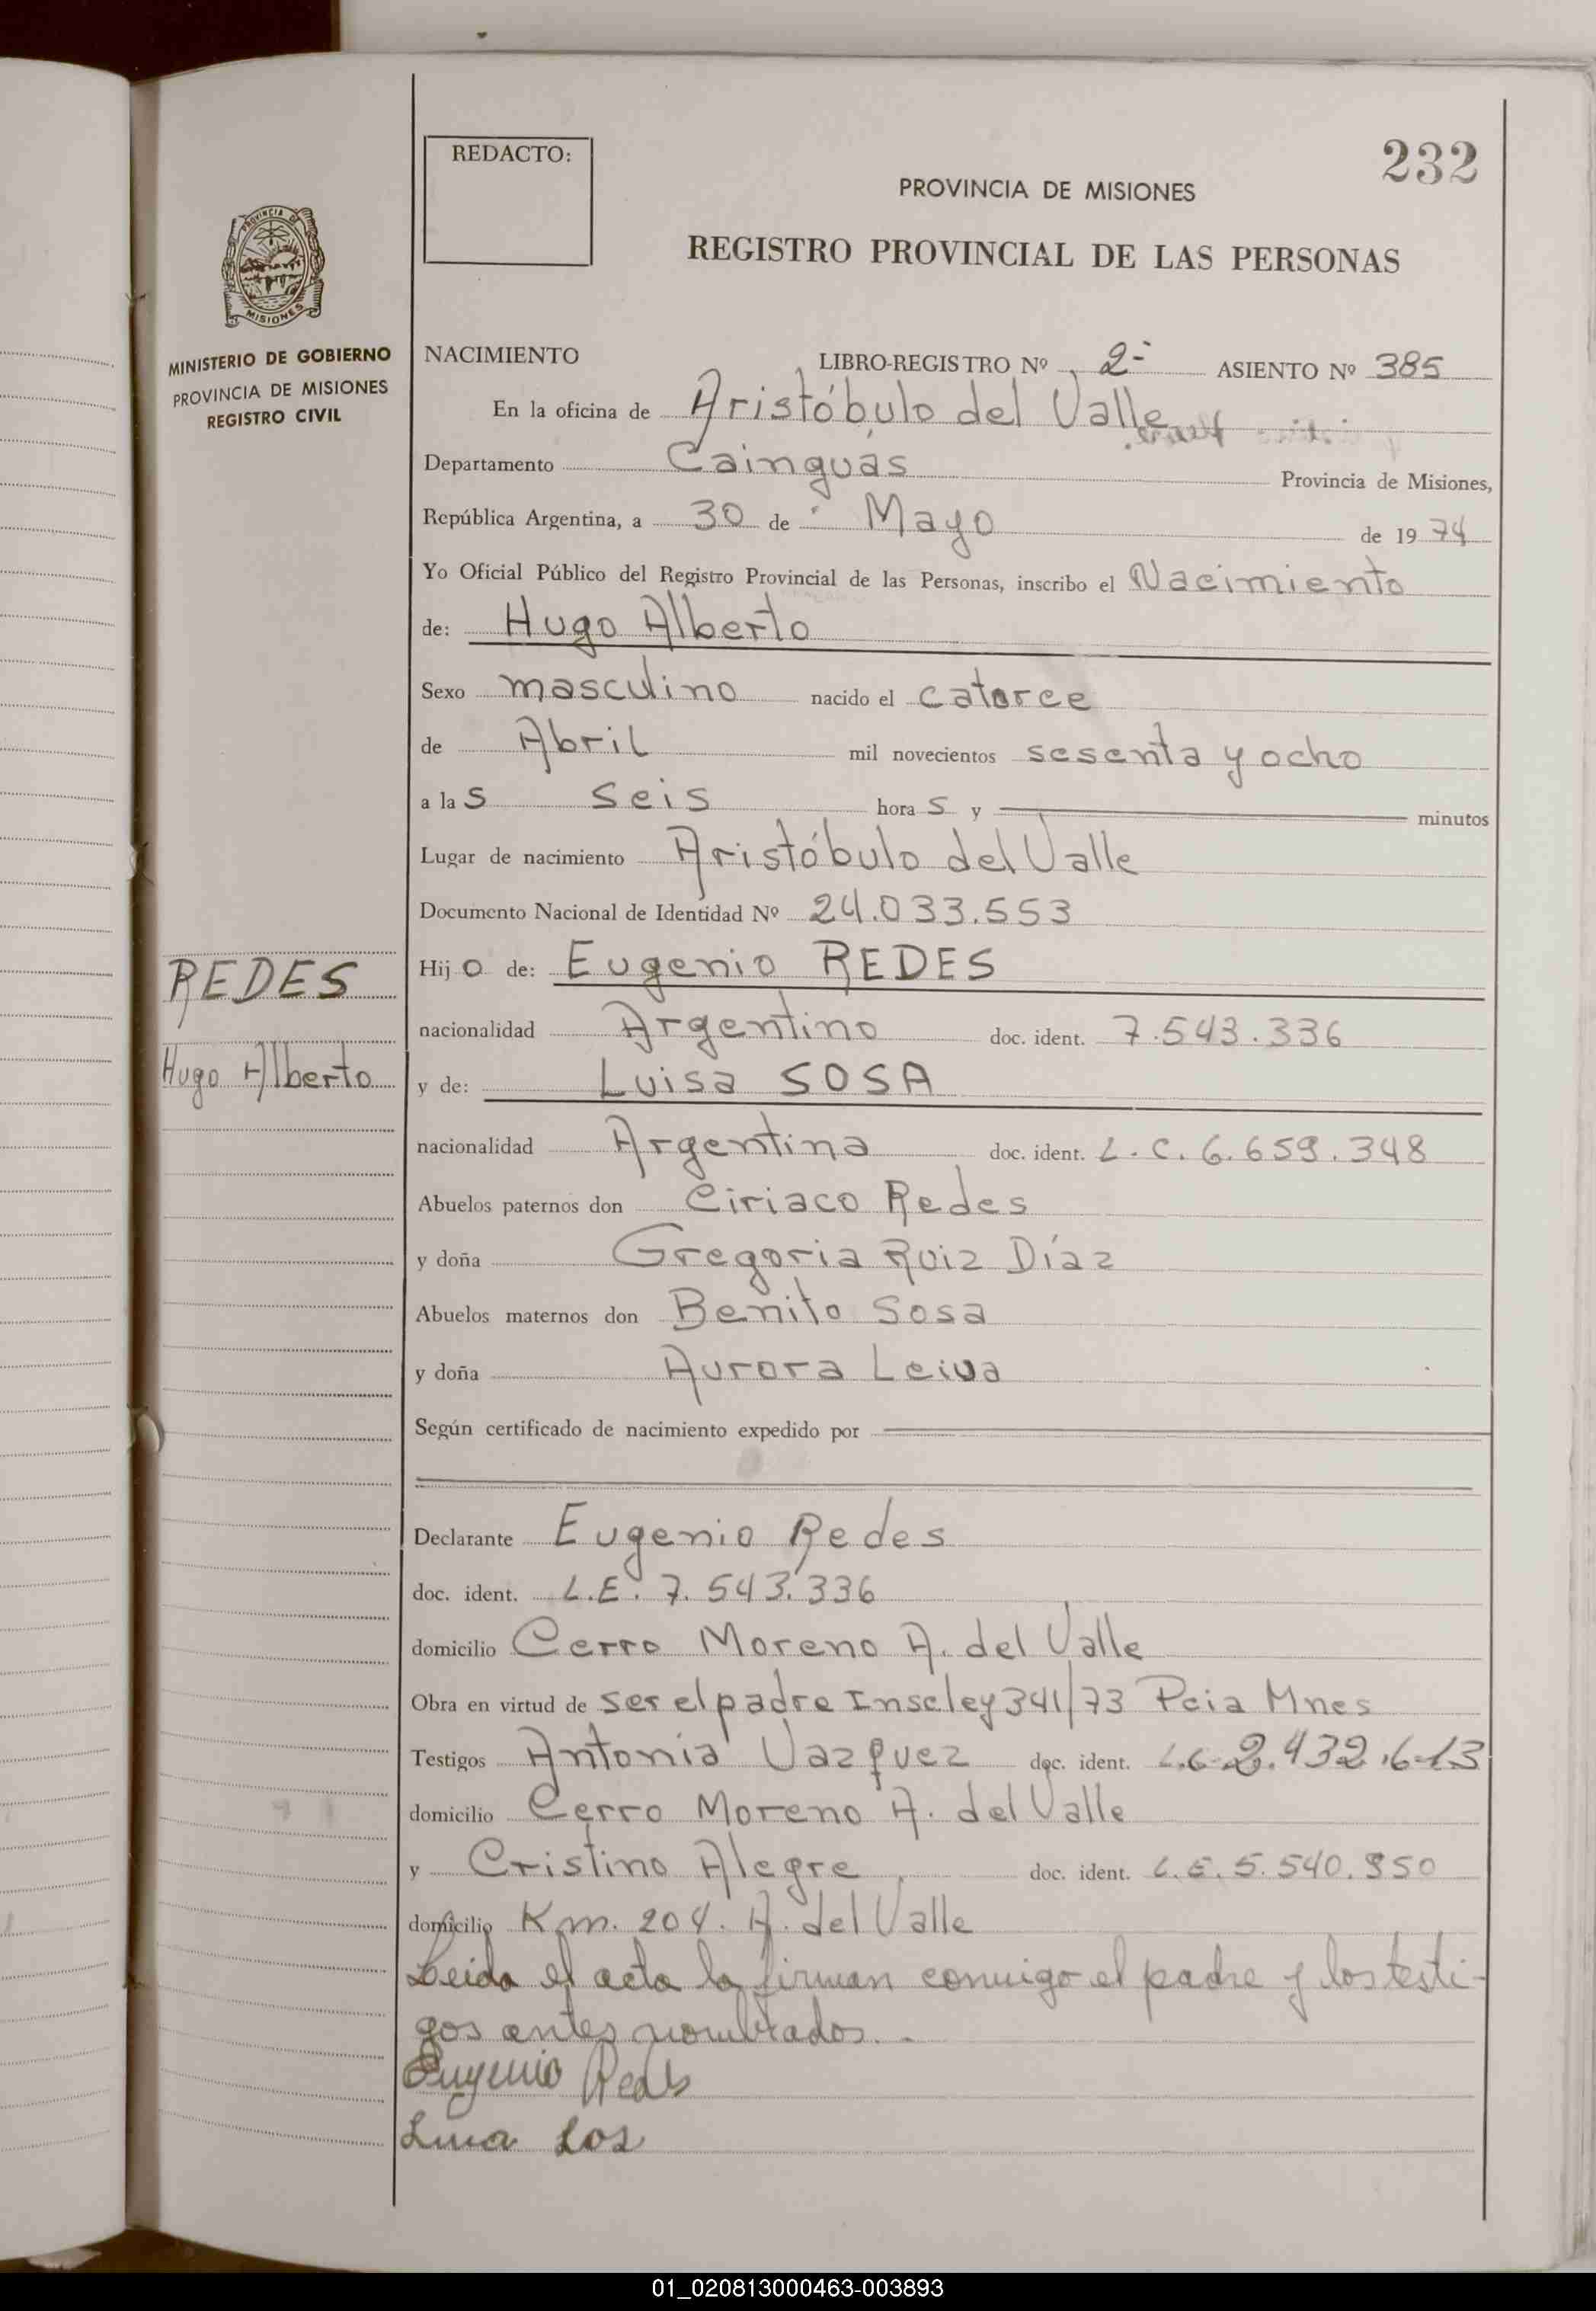 REDACTO:
232
PROVINCIA DE MISIONES
REGISTRO PROVINCIAL DE LAS PERSONAS
PROVINCIA DE
MISIONES
MINISTERIO DE GOBIERNO
PROVINCIA DE MISIONES
REGISTRO CIVIL
NACIMIENTO LIBRO-REGISTRO Nº 2- ASIENTO Nº 385
En la oficina de Aristóbulo del Valle
Departamento Cainguás Provincia de Misiones,
República Argentina, a 30 de Mayo de 1974
Yo Oficial Público del Registro Provincial de las Personas, inscribo el Nacimiento
de: Hugo Alberto
Sexo masculino nacido el catorce
de Abril mil novecientos sesenta y ocho
a las seis horas y minutos
Lugar de nacimiento Aristóbulo del Valle
Documento Nacional de Identidad Nº 24.033.553
REDES
Hugo Alberto
Hijo de: Eugenio REDES
nacionalidad Argentino doc. ident. 7.543.336
y de: Luisa SOSA
nacionalidad Argentina doc. ident. L.C. 6.659.348
Abuelos paternos don Ciriaco Redes
y doña Gregoria Ruiz Díaz
Abuelos maternos don Benito Sosa
y doña Aurora Leiva
Según certificado de nacimiento expedido por
Declarante Eugenio Redes
doc. ident. L.E. 7.543.336
domicilio Cerro Moreno A. del Valle
Obra en virtud de ser el padre Insc ley 341/73 Pcia Mnes
Testigos Antonia Vazquez doc. ident. L.C. 2.432.613
domicilio Cerro Moreno A. del Valle
y Cristino Alegre doc. ident. L.E. 5.540.950
domicilio Km. 204. A. del Valle
Leida el acta la firman conmigo el padre y los testi-
gos antes nombrados.-
Eugenio Redes
01_020813000463-003893